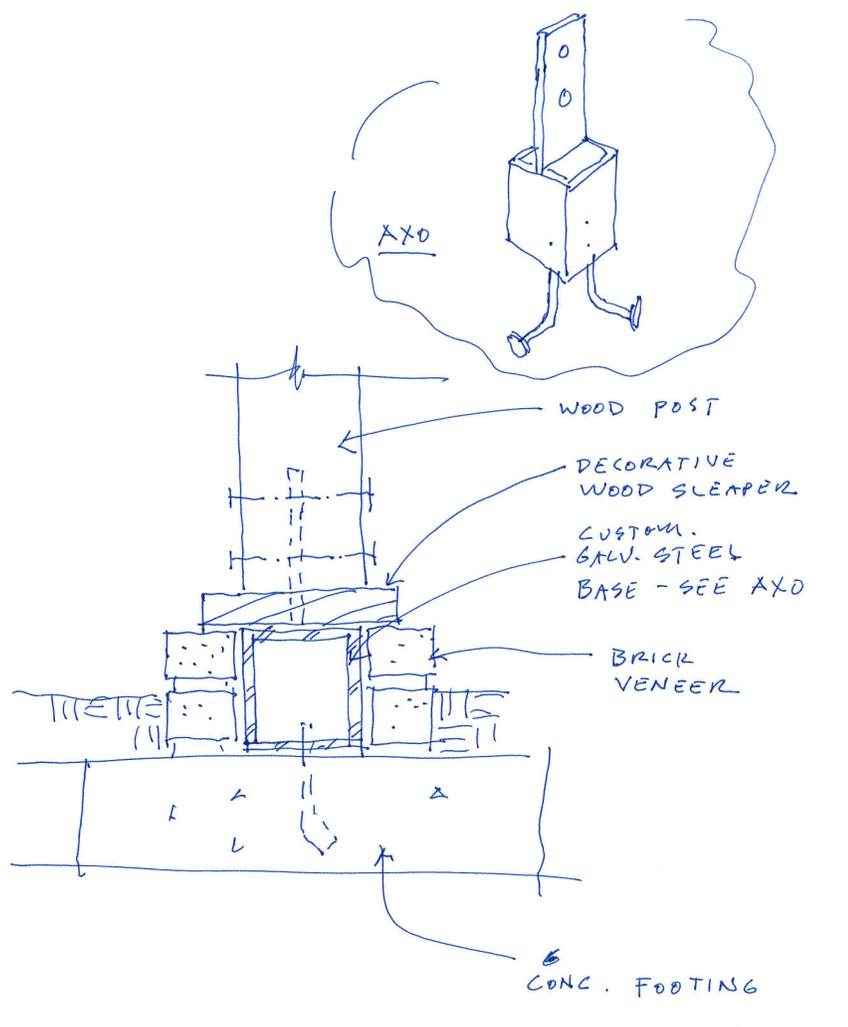 AXO
WOOD POST
DECORATIVE
WOOD SLEAPER
CUSTOM.
GALV. STEEL
BASE - SEE AXO
BRICK
VENEER
CONC. FOOTING